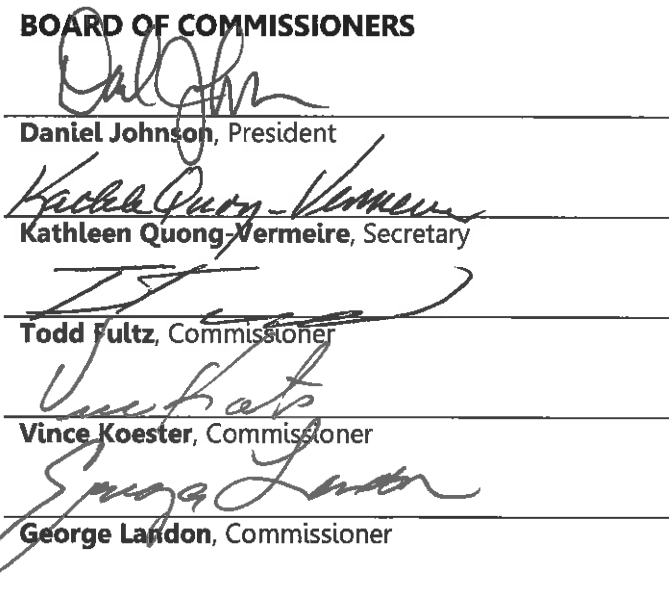 BOARD OF COMMISSIONERS
Daniel Johnson, President
Kathleen Quong-Vermeire, Secretary
Todd Fultz, Commissioner
Vince Koester, Commissioner
George Landon, Commissioner